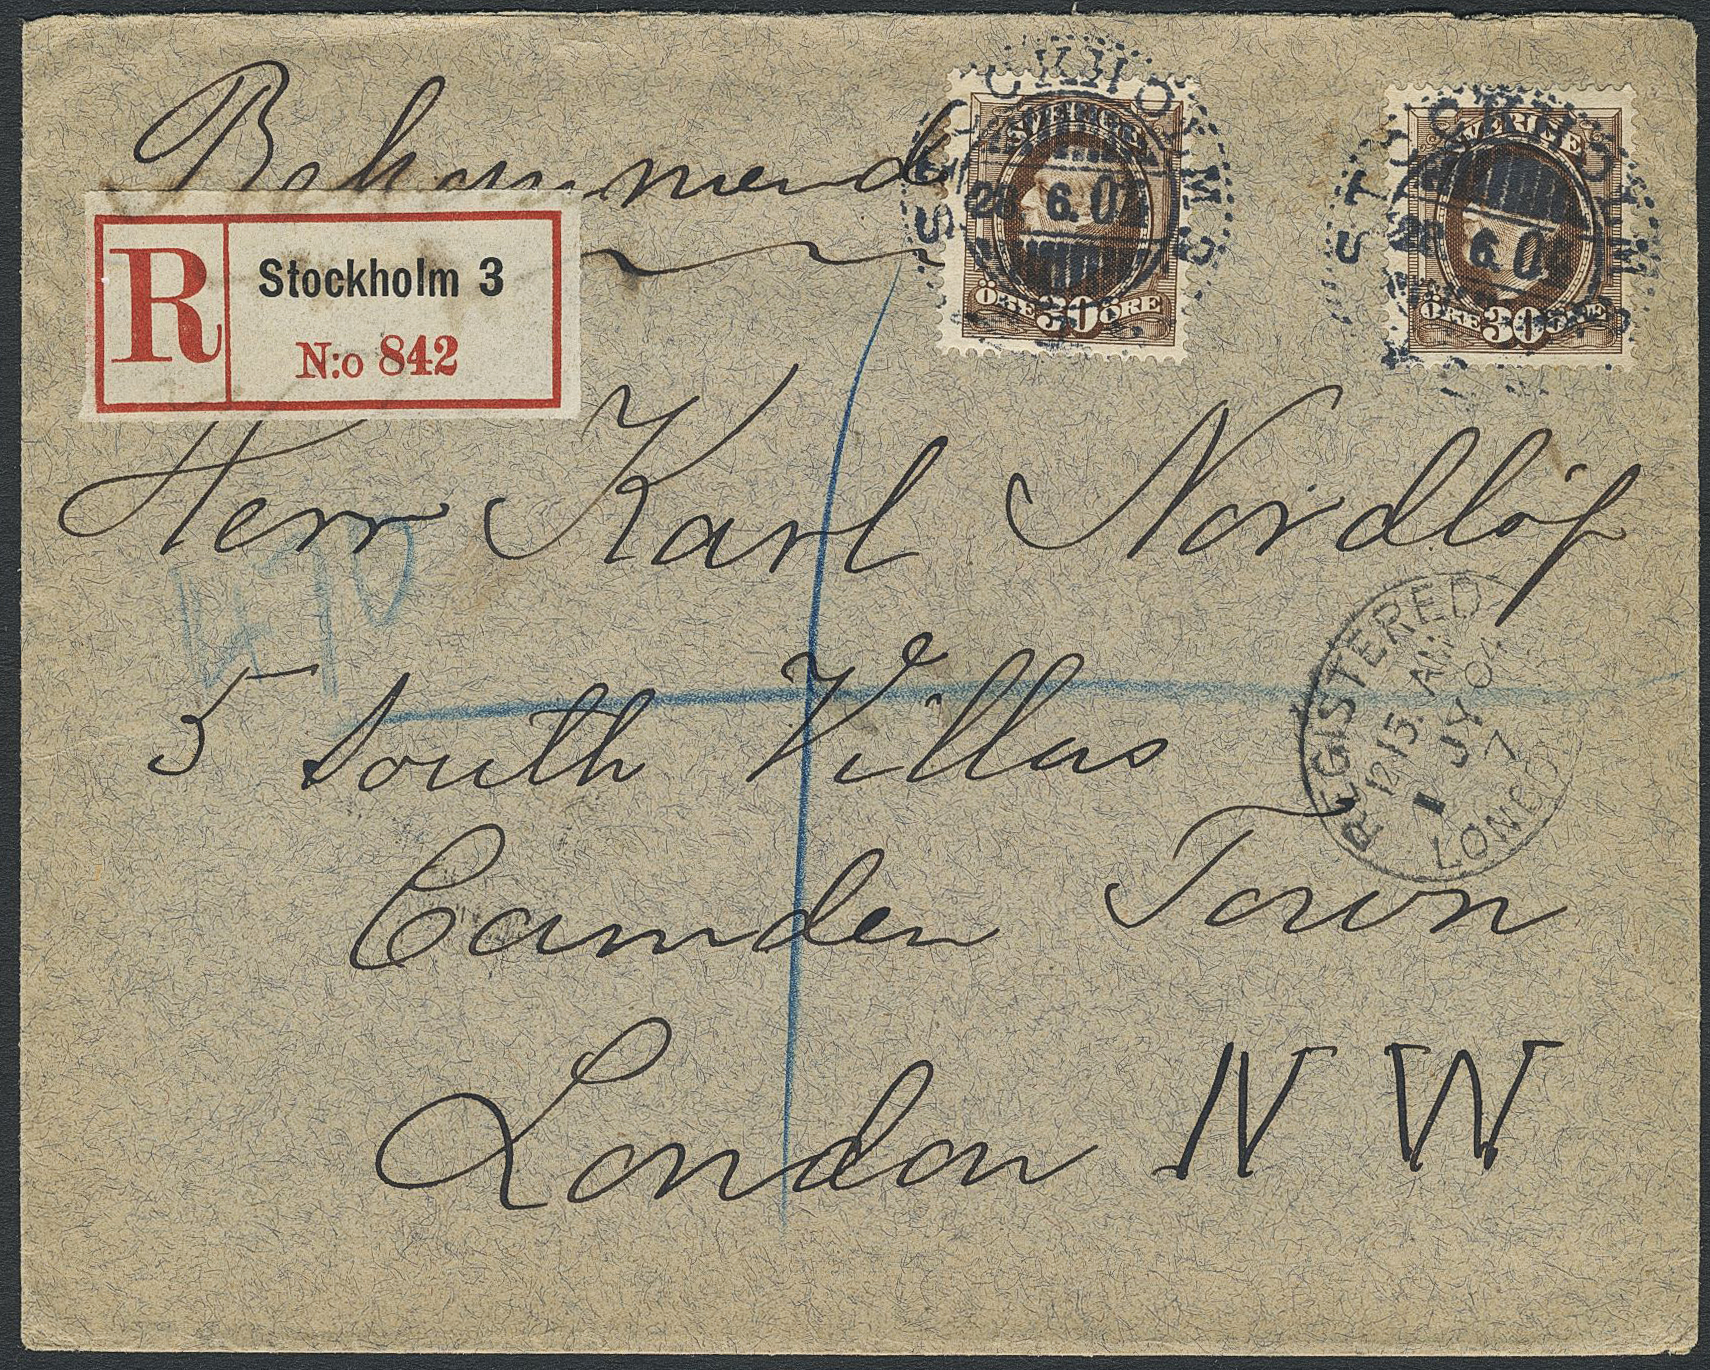 Rekommend
R
Stockholm 3
N:o 842
STOCKHOLM 3
28.6.04
SVERIGE
ÖRE 30 ÖRE
STOCKHOLM
28.6.0
SVERIGE
ÖRE 30 ÖRE
Herr Karl Nordlöf
470
5 South Villas
Camden Town
London N W
REGISTERED
12.15 AM
1 JY 04
7
LONDON